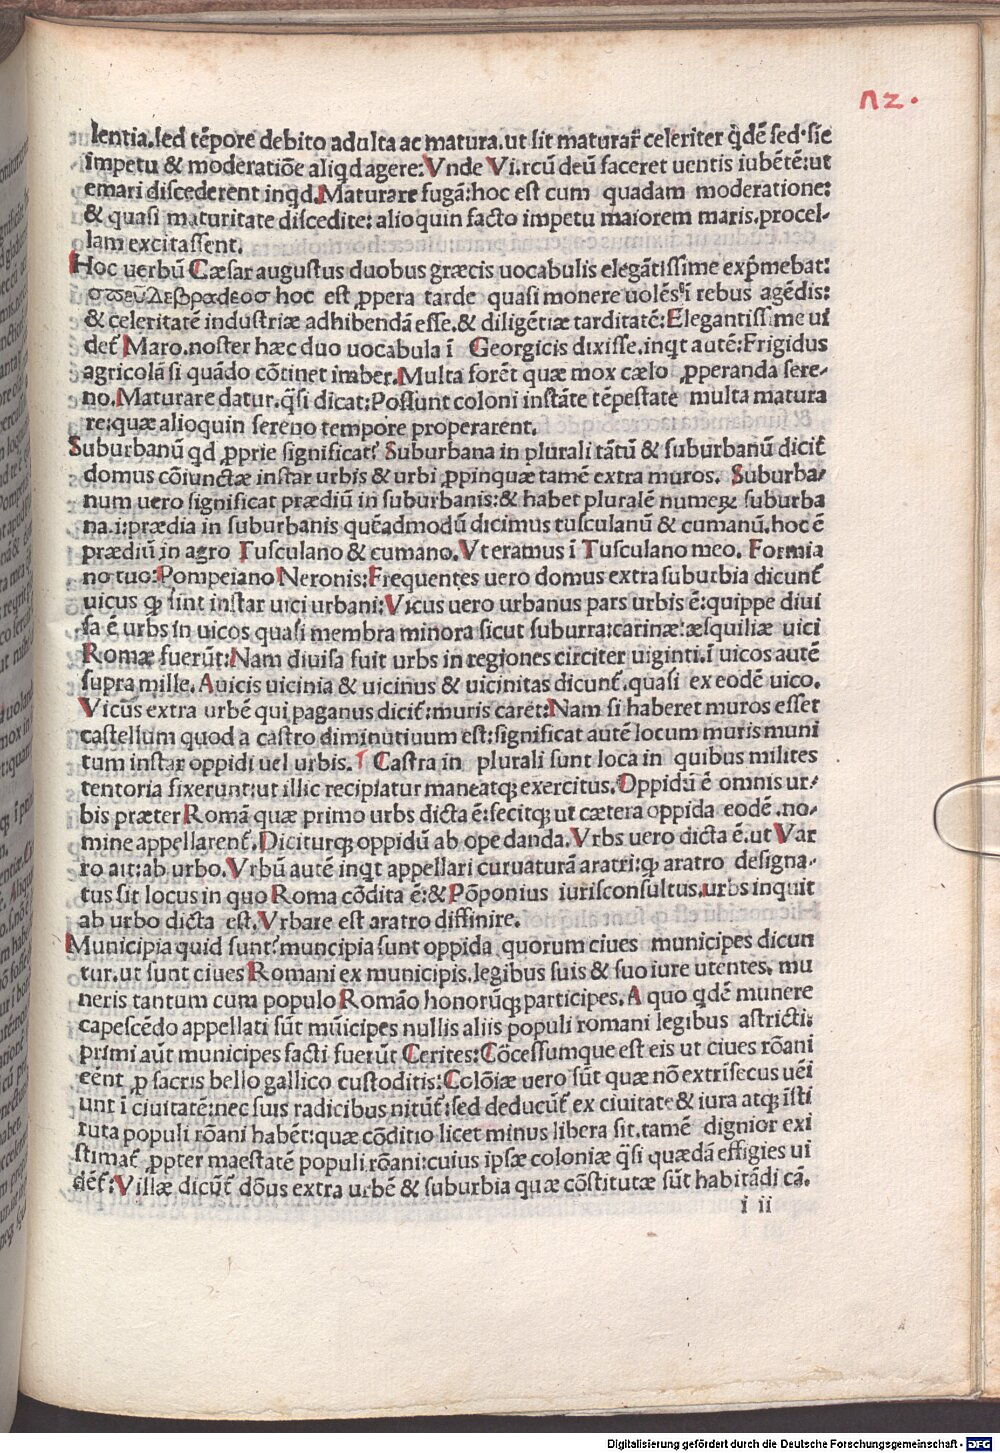 Λ2.
lentia.sed tēpore debito adulta ac matura.ut sit maturar̄ celeriter q̇dē sed sie
impetu & moderatiōe aliqd agere:Vnde Vi.rcū deū faceret uentis iubētē:ut
emari discederent inqd.Maturare fugā:hoc est cum quadam moderatione:
& quasi maturitate discedite: alioquin facto impetu maiorem maris.procel-
lam excitassent.
Hoc uerbū Cæsar augustus duobus græcis uocabulis elegātissime exp̄mebat:
hoc est ꝓpera tarde quasi monere uolēs ī rebus agēdis:
& celeritatē industriæ adhibendā esse.& diligētiæ tarditatē:Elegantissime ui
det᷑ Maro.noster hæc duo uocabula ī Georgicis dixisse.inqt autē:Frigidus
agricolā si quādo cōtinet imber.Multa forēt quæ mox cælo ꝓperanda sere-
no.Maturare datur.q̄si dicat:Possunt coloni instāte tēpestate multa matura
re:quæ alioquin sereno tempore properarent.
Suburbanū qd ꝓprie significat? Suburbana in plurali tātū & suburbanū dicit᷑
domus cōiunctæ instar urbis & urbi ꝓpinquæ tamē extra muros. Suburba-
num uero significat prædiū in suburbanis:& habet pluralē numeꝝ suburba
na.i:prædia in suburbanis quēadmodū dicimus tusculanū & cumanū.hoc ē
prædiū in agro Tusculano & cumano.Vt eramus ī Tusculano meo. Formia
no tuo:Pompeiano Neronis:Frequentes uero domus extra suburbia dicunt᷑
uicus ꝙ sint instar uici urbani:Vicus uero urbanus pars urbis ē:quippe diui
sa ē urbs in uicos quasi membra minora sicut suburra:carinæ:æsquiliæ uici
Romæ fuerūt:Nam diuisa fuit urbs in regiones circiter uiginti.ī uicos autē
supra mille. Auicis uicinia & uicinus & uicinitas dicunt᷑.quasi ex eodē uico.
Vicus extra urbē qui paganus dicit᷑:muris caret:Nam si haberet muros esset
castellum quod a castro diminutiuum est:significat autē locum muris muni
tum instar oppidi uel urbis. Castra in plurali sunt loca in quibus milites
tentoria fixerunt:ut illic recipiatur maneatqꝫ exercitus.Oppidū ē omnis ur-
bis præter Romā quæ primo urbs dicta ē:fecitqꝫ ut cætera oppida eodē .no-
mine appellarent᷑.Diciturqꝫ oppidū ab ope danda.Vrbs uero dicta ē.ut Var
ro ait:ab urbo.Vrbū autē inqt appellari curuaturā aratri:ꝙ aratro designa-
tus sit locus in quo Roma cōdita ē:& Pōponius iurisconsultus.urbs inquit
ab urbo dicta est.Vrbare est aratro diffinire.
Municipia quid sunt?muncipia sunt oppida quorum ciues municipes dicun
tur.ut sunt ciues Romani ex municipis.legibus suis & suo iure utentes. mu
neris tantum cum populo Romāo honorūqꝫ participes. A quo q̇dē munere
capescēdo appellati sūt mūicipes nullis aliis populi romani legibus astricti.
primi aūt municipes facti fuerūt Cerites:Cōcessumque est eis ut ciues rōani
eēnt ꝓ sacris bello gallico custoditis:Colōiæ uero sūt quæ nō extrīsecus uēi
unt ī ciuitatē:nec suis radicibus nitūt᷑:sed deducūt᷑ ex ciuitate & iura atqꝫ īsti
tuta populi rōani habēt:quæ cōditio licet minus libera sit.tamē dignior exi
stimat᷑ ꝓpter maestatē populi rōani:cuius ipsæ coloniæ q̄si quædā effigies ui
det᷑:Villæ dicūt᷑ dōus extra urbē & suburbia quæ cōstitutæ sūt habitādi cā.
i ii
Digitalisierung gefördert durch die Deutsche Forschungsgemeinschaft - DFG